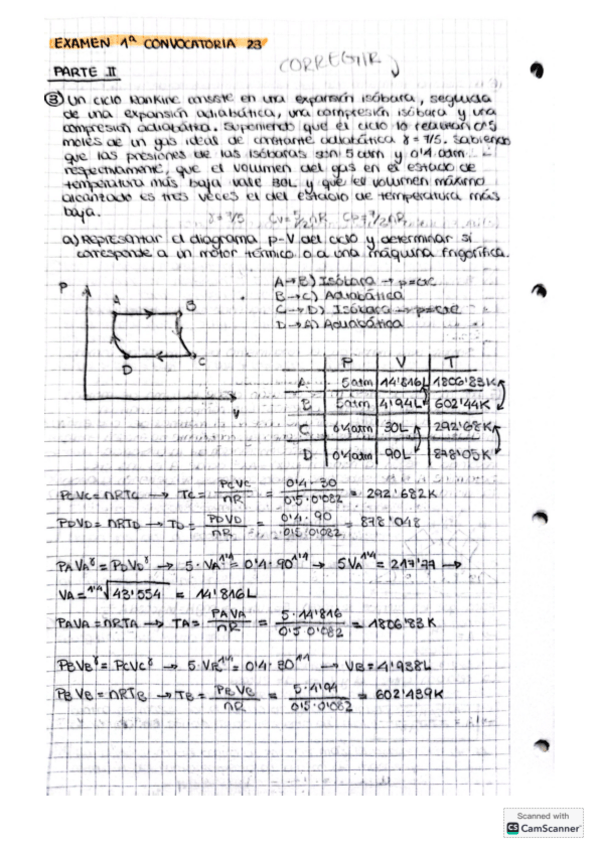 EXAMEN 1ª CONVOCATORIA 23
CORREGIR
PARTE II
③ Un ciclo Rankine consiste en una expansión isóbara, seguida
de una expansión adiabática, una compresión isóbara y una
compresión adiabática. Suponiendo que el ciclo lo realizan 0'5
moles de un gas ideal de constante adiabática γ = 7/5. Sabiendo
que las presiones de las isóbaras son 5 atm y 0'4 atm
respectivamente, que el volumen del gas en el estado de
temperatura más baja vale 30L y que el volumen máximo
alcanzado es tres veces el del estado de temperatura más
baja.
γ = 7/5 Cv = 5/2 nR Cp = 7/2 nR
a) Representar el diagrama p-V del ciclo y determinar si
corresponde a un motor térmico o a una máquina frigorífica.
A→B) Isóbara → p=cte
B→C) Adiabática
C→D) Isóbara → p=cte
D→A) Adiabática
P
A
B
D
C
V
P V T
A 5atm 14'816L 1806'83K
B 5atm 4'94L 602'44K
C 0'4atm 30L 292'68K
D 0'4atm 90L 878'05K
PcVc = nRTc → Tc = PcVc/nR = 0'4·30/0'5·0'082 = 292'682K
PDVD = nRTD → TD = PDVD/nR = 0'4·90/0'5·0'082 = 878'048
PAVA^γ = PDVD^γ → 5·VA^1'4 = 0'4·90^1'4 → 5VA^1'4 = 217'77 →
VA = ^1'4√43'554 = 14'816L
PAVA = nRTA → TA = PAVA/nR = 5·14'816/0'5·0'082 = 1806'83K
PBVB^γ = PcVc^γ → 5·VB^1'4 = 0'4·30^1'4 → VB = 4'938L
PBVB = nRTB → TB = PBVB/nR = 5·4'94/0'5·0'082 = 602'439K
Scanned with
CS CamScanner